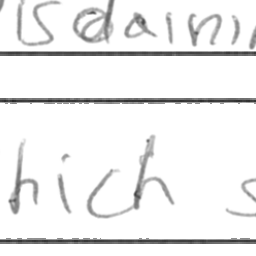 isdaini
hich s